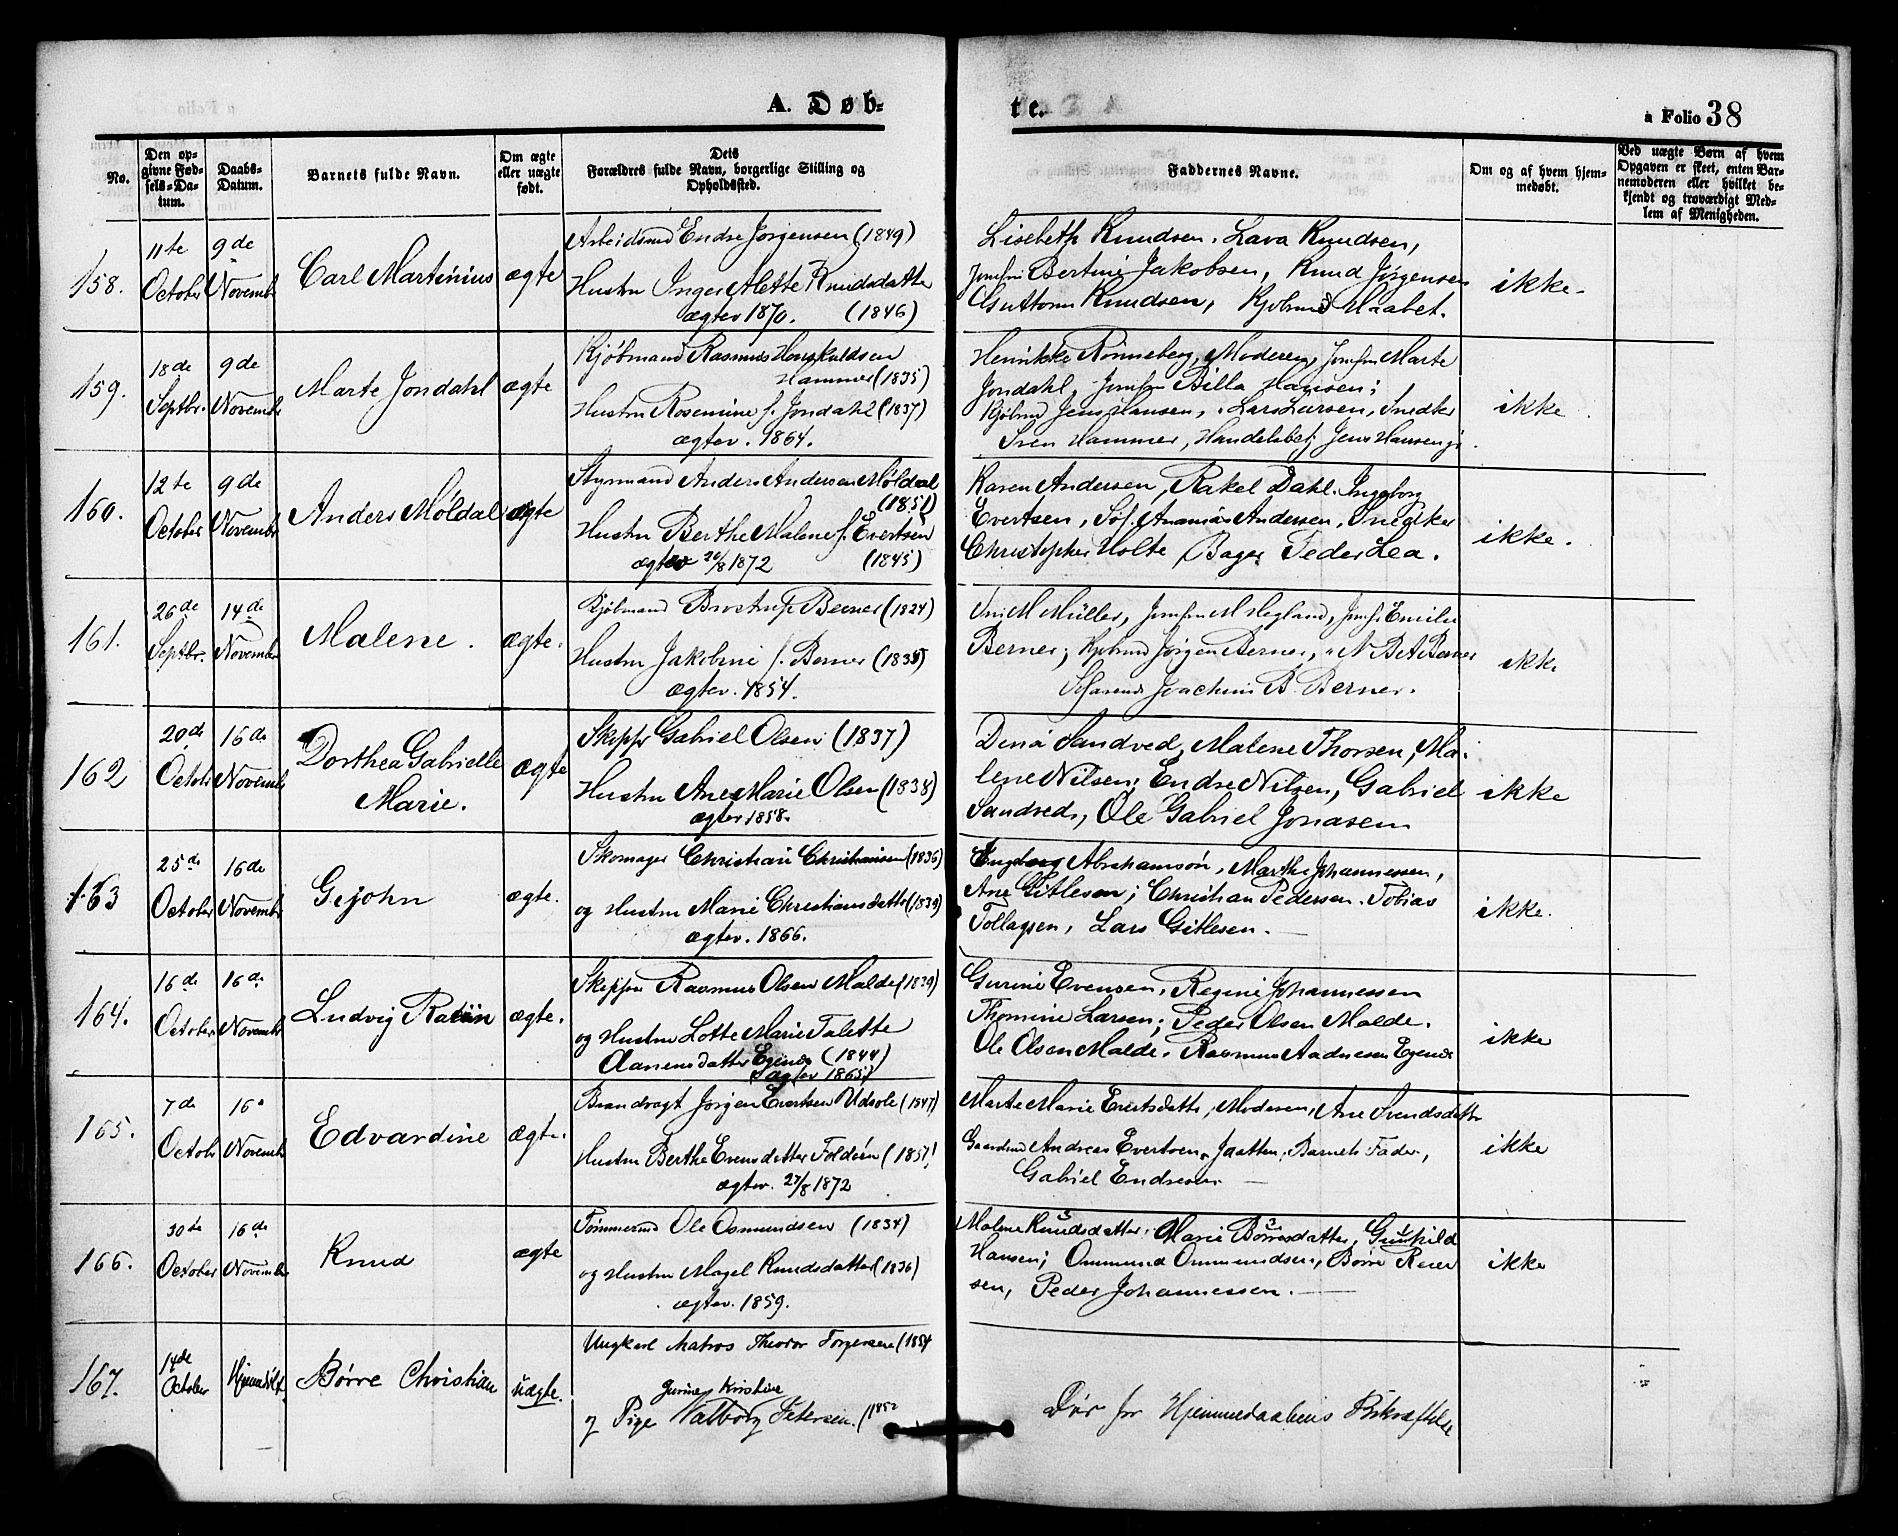 A. Døb-
te.
a Folio 38
No.
Den op-
givne Fød-
sels-Da-
tum.
Daabs-
Datum.
Barnets fulde Navn.
Om ægte
eller uægte
født.
Dets
Forældres fulde Navn, borgerlige Stilling og
Opholdssted.
Faddernes Navne.
Om og af hvem hjem-
medøbt.
Ved uægte Børn af hvem
Opgaven er skeet, enten Bar-
nemoderen eller hvilket be-
kjendt og troværdigt Med-
lem af Menigheden.
158.
11te
October
9de
November
Carl Martinius
ægte
Arbeidsmd Endre Jørgensen (1849)
Hustru Inger Alette Knudsdatter
ægtev 1870. (1846)
Lisebeth Knudsen, Lava Knudsen,
Jomfru Bertine Jakobsen, Knud Jørgensen
Guttorm Knudsen, Kjøbmd Haabet.
ikke.
159.
18de
Septbr.
9de
November
Marte Jondahl
ægte
Kjøbmand Rasmus Houskuldsen
Hammer (1835)
Hustru Rosemine f. Jondahl (1837)
ægtev. 1864.
Henrikke Rønneberg, Moderen, Jomfru Marte
Jondahl, Jomfru Billa Hansen;
Kjøbmd Jens Hansen, Lars Larsen, Snedker
Sven Hammer, Handelsbetj. Jens Hansen jr.
ikke.
160.
12te
October
9de
November
Anders Møldal
ægte
Styrmand Anders Andersen Møldal
(1851)
Hustru Berthe Malene f. Evertsen
ægtev 20/8 1872 (1845)
Karen Andersen, Rakel Dahl, Ingeborg
Evertsen, Søf. Ananias Andersen, Snedker
Christopher Holte, Bager Peder Lea.
ikke.
161.
26de
Septbr.
14de
November
Malene.
ægte.
Kjøbmand Brostrup Berner (1824)
Hustru Jakobine f. Berner (1835)
ægtev. 1854.
M Müller, Jomfru M Høgland, Jomf. Emilie
Berner; Kjøbmd Jørgen Berner, N B A Berner
Søfarende Joachim B. Berner.
ikke
162
20de
Octobr
16de
Novembr
Dorthea Gabrielle
Marie.
ægte
Skipper Gabriel Olsen (1837)
Hustru Ane Marie Olsen (1838)
ægtev 1858.
Dina Sandved, Malene Thorsen, Ma-
lene Nilsen; Endre Nilsen, Gabriel
Sandved, Ole Gabriel Jonasen
ikke
163
25de
October
16de
November
Gejohn
ægte.
Skomager Christian Christiansen (1836)
og Hustru Marie Christiansdatter (1839)
ægtev. 1866.
Engborg Abrahamson, Marthe Johannessen,
Ane Gitlesen; Christian Pedersen, Tobias
Tollagsen, Lars Gitlesen.
ikke.
164.
16de
October
16de
November
Ludvig
ægte.
Skipper Rasmus Olsen Malde (1839)
og Hustru Lotte Marie Talette
Aanensdatter Egenes (1844)
ægtev 1865
Gurine Evensen, Regine Johannessen
Thomine Larsen; Peder Olsen Malde.
Ole Olsen Malde. Rasmus Aadnesen Egenes
ikke
165.
7de
Octobr
16
Novemb
Edvardine
ægte.
Brandvagt Jørgen Evertsen Udsole (1847)
Hustru Berthe Evensdatter Foldøen (1851)
ægtev. 27/8 1872
Marte Marie Evertsdatter, Moderen, Ane Svendsdatter
Gaardmd Andreas Evertsen, Jdatten, Barnets Fader,
Gabriel Endresen
ikke
166.
30te
October
16de
November
Knud
ægte
Tømmermd Ole Osmundsen (1834)
og Hustru Magel Knudsdatter (1836)
ægtev. 1859.
Malene Knudsdatter, Marie Børresdatter, Gunhild
Hansen; Ommund Ommundsen, Børre Reier-
sen, Peder Johannessen.
ikke
167.
14de
October
Hjemmedøbt
Børre Christian
uægte.
Ungkarl Matros Theodor Torgersen (1854
Gurine Kirstine
og Pige Valborg Petersen. (1852
Død før Hjemmedaabens Bekræftelse